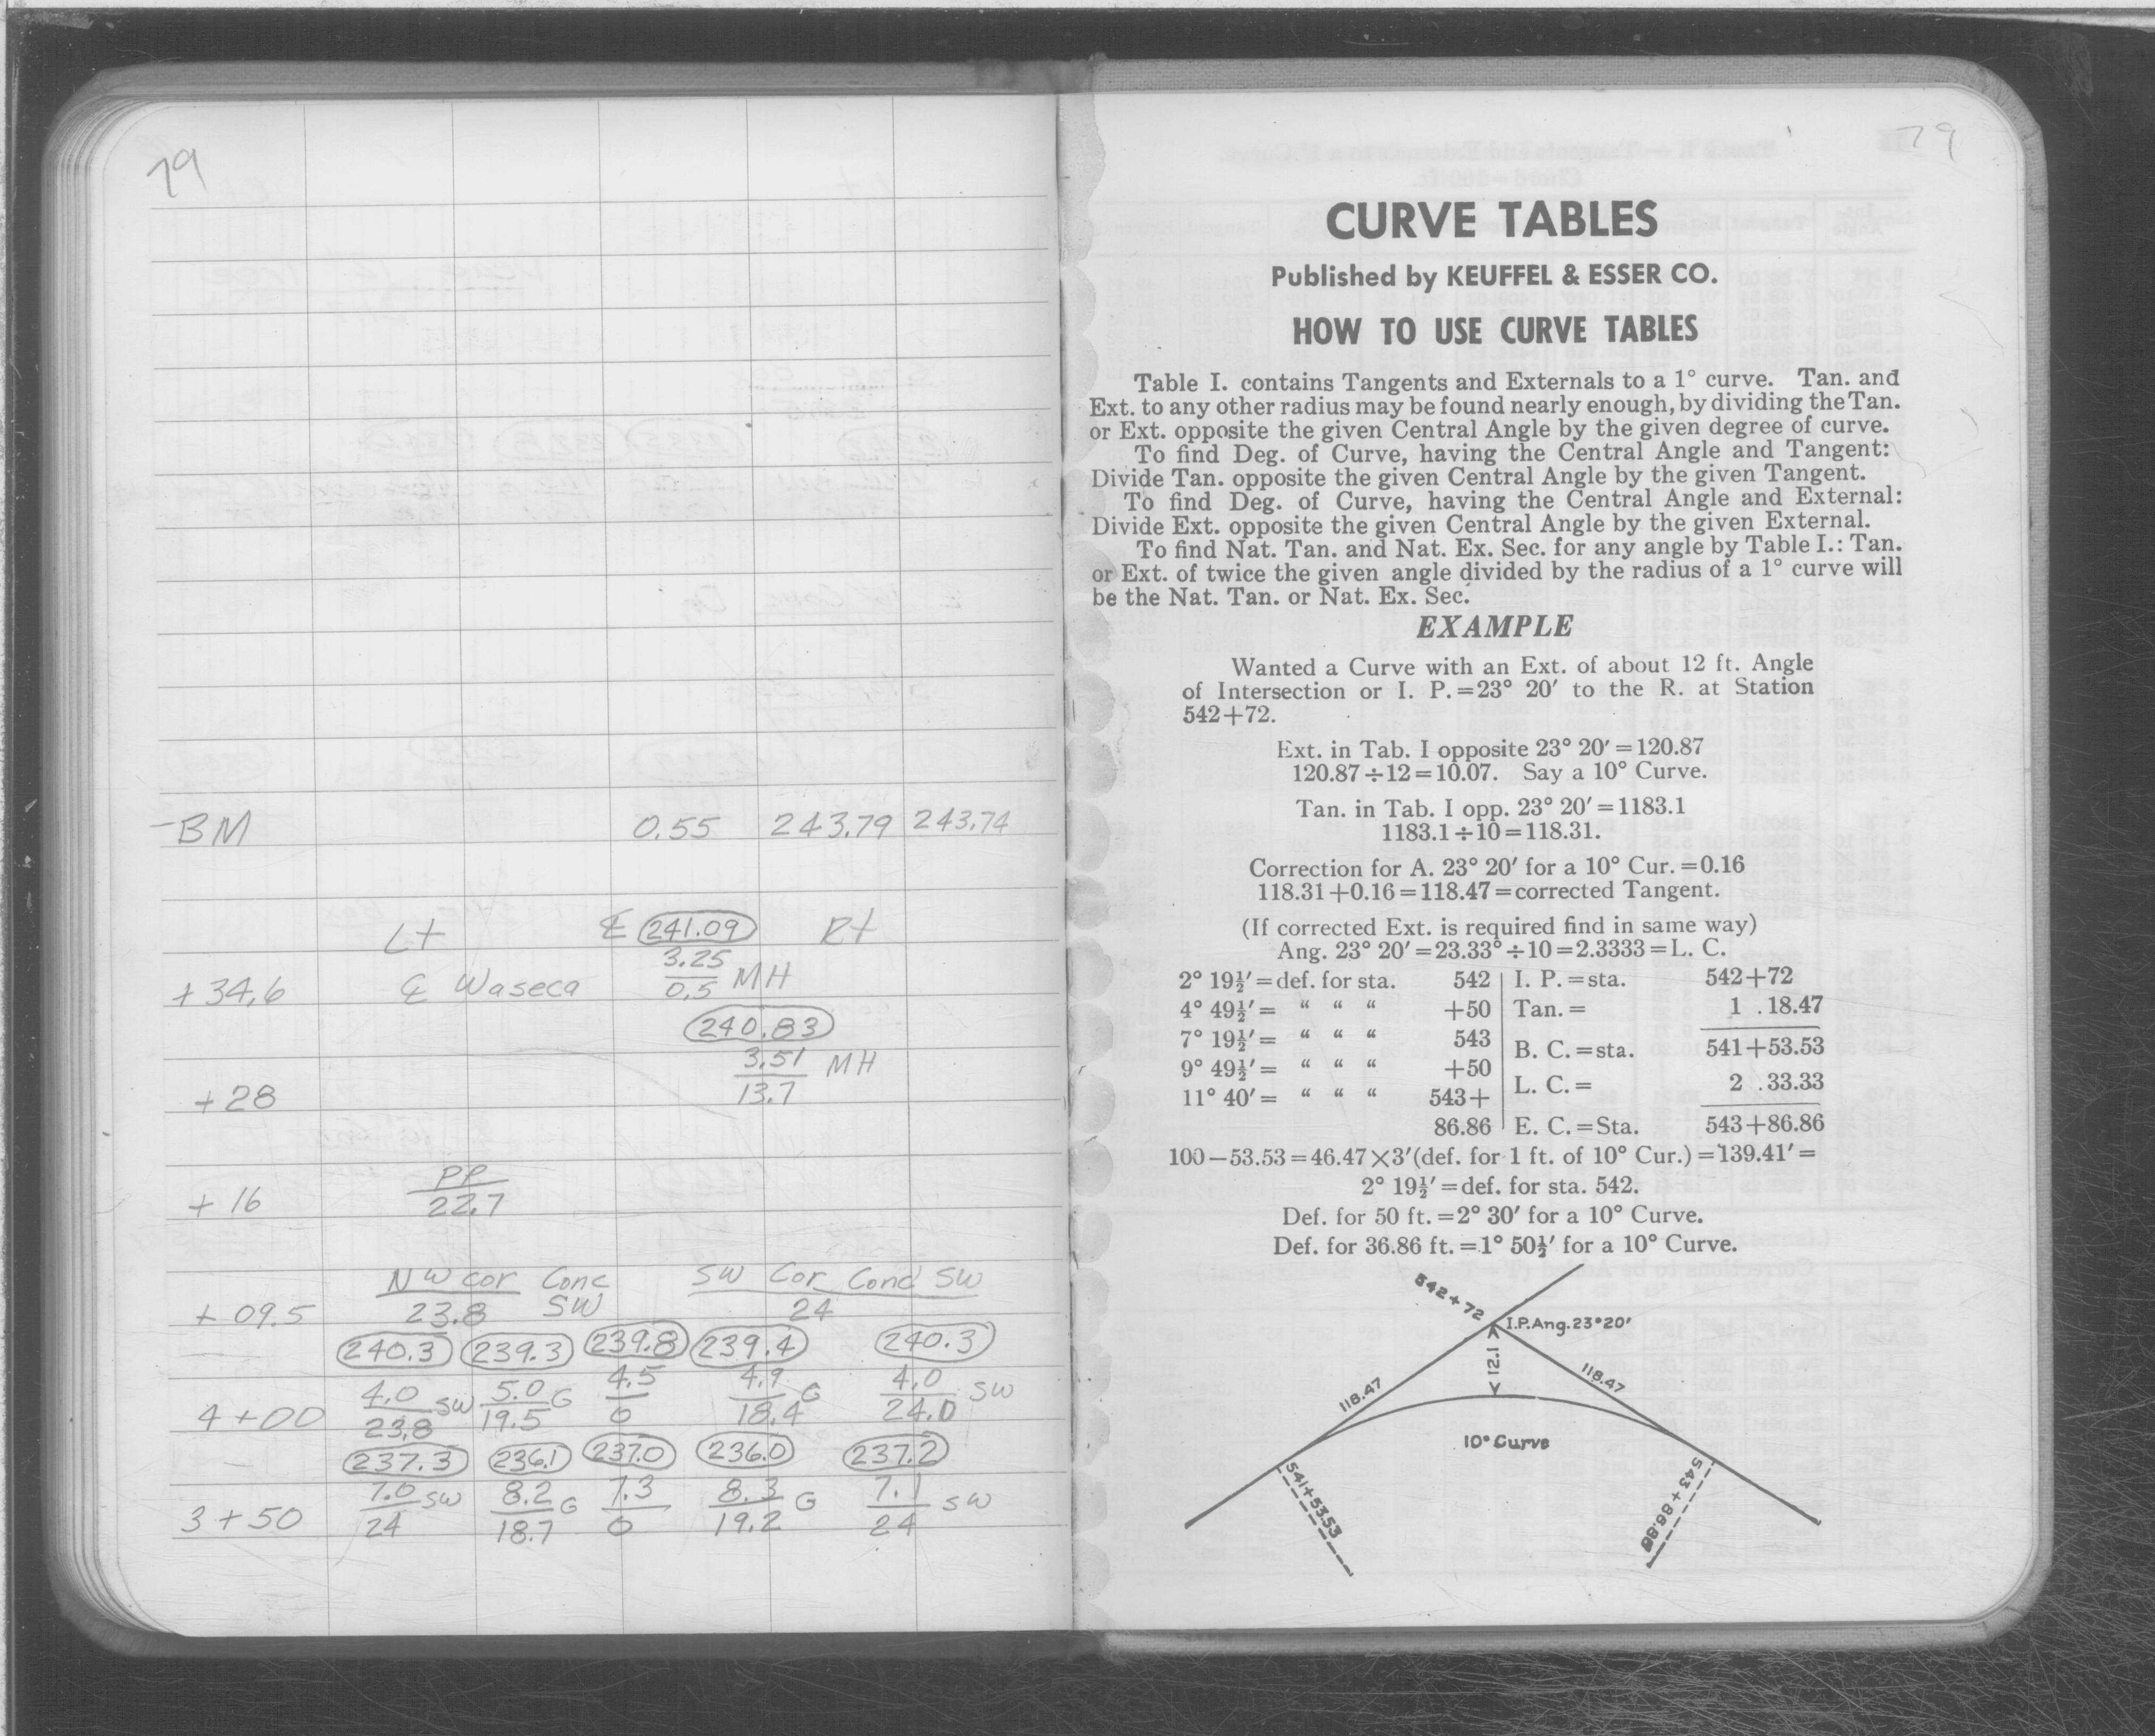 79
-BM 0.55 243.79 243.74
Lt ℄ 241.09 Rt
3.25
+34.6 ℄ Waseca 0.5 MH
240.83
3.51 MH
+28 13.7
PP
+16 22.7
NW cor Conc SW Cor Conc SW
+09.5 23.8 SW 24
240.3 239.3 239.8 239.4 240.3
4.0 SW 5.0 G 4.5 4.9 G 4.0 SW
4+00 23.8 19.5 0 18.4 24.0
237.3 236.1 237.0 236.0 237.2
7.0 SW 8.2 G 7.3 8.3 G 7.1 SW
3+50 24 18.7 0 19.2 24
79
CURVE TABLES
Published by KEUFFEL & ESSER CO.
HOW TO USE CURVE TABLES
Table I. contains Tangents and Externals to a 1° curve. Tan. and
Ext. to any other radius may be found nearly enough, by dividing the Tan.
or Ext. opposite the given Central Angle by the given degree of curve.
To find Deg. of Curve, having the Central Angle and Tangent:
Divide Tan. opposite the given Central Angle by the given Tangent.
To find Deg. of Curve, having the Central Angle and External:
Divide Ext. opposite the given Central Angle by the given External.
To find Nat. Tan. and Nat. Ex. Sec. for any angle by Table I.: Tan.
or Ext. of twice the given angle divided by the radius of a 1° curve will
be the Nat. Tan. or Nat. Ex. Sec.
EXAMPLE
Wanted a Curve with an Ext. of about 12 ft. Angle
of Intersection or I. P.=23° 20′ to the R. at Station
542+72.
Ext. in Tab. I opposite 23° 20′=120.87
120.87÷12=10.07. Say a 10° Curve.
Tan. in Tab. I opp. 23° 20′=1183.1
1183.1÷10=118.31.
Correction for A. 23° 20′ for a 10° Cur.=0.16
118.31+0.16=118.47=corrected Tangent.
(If corrected Ext. is required find in same way)
Ang. 23° 20′=23.33°÷10=2.3333=L. C.
2° 19½′=def. for sta. 542 I. P.=sta. 542+72
4° 49½′= “ “ “ +50 Tan.= 1 .18.47
7° 19½′= “ “ “ 543 B. C.=sta. 541+53.53
9° 49½′= “ “ “ +50 L. C.= 2 .33.33
11° 40′= “ “ “ 543+
86.86 E. C.=Sta. 543+86.86
100−53.53=46.47×3′(def. for 1 ft. of 10° Cur.)=139.41′=
2° 19½′=def. for sta. 542.
Def. for 50 ft.=2° 30′ for a 10° Curve.
Def. for 36.86 ft.=1° 50½′ for a 10° Curve.
542+72
I.P.Ang.23°20′
12.1
118.47
118.47
10° Curve
541+53.53
543+86.86